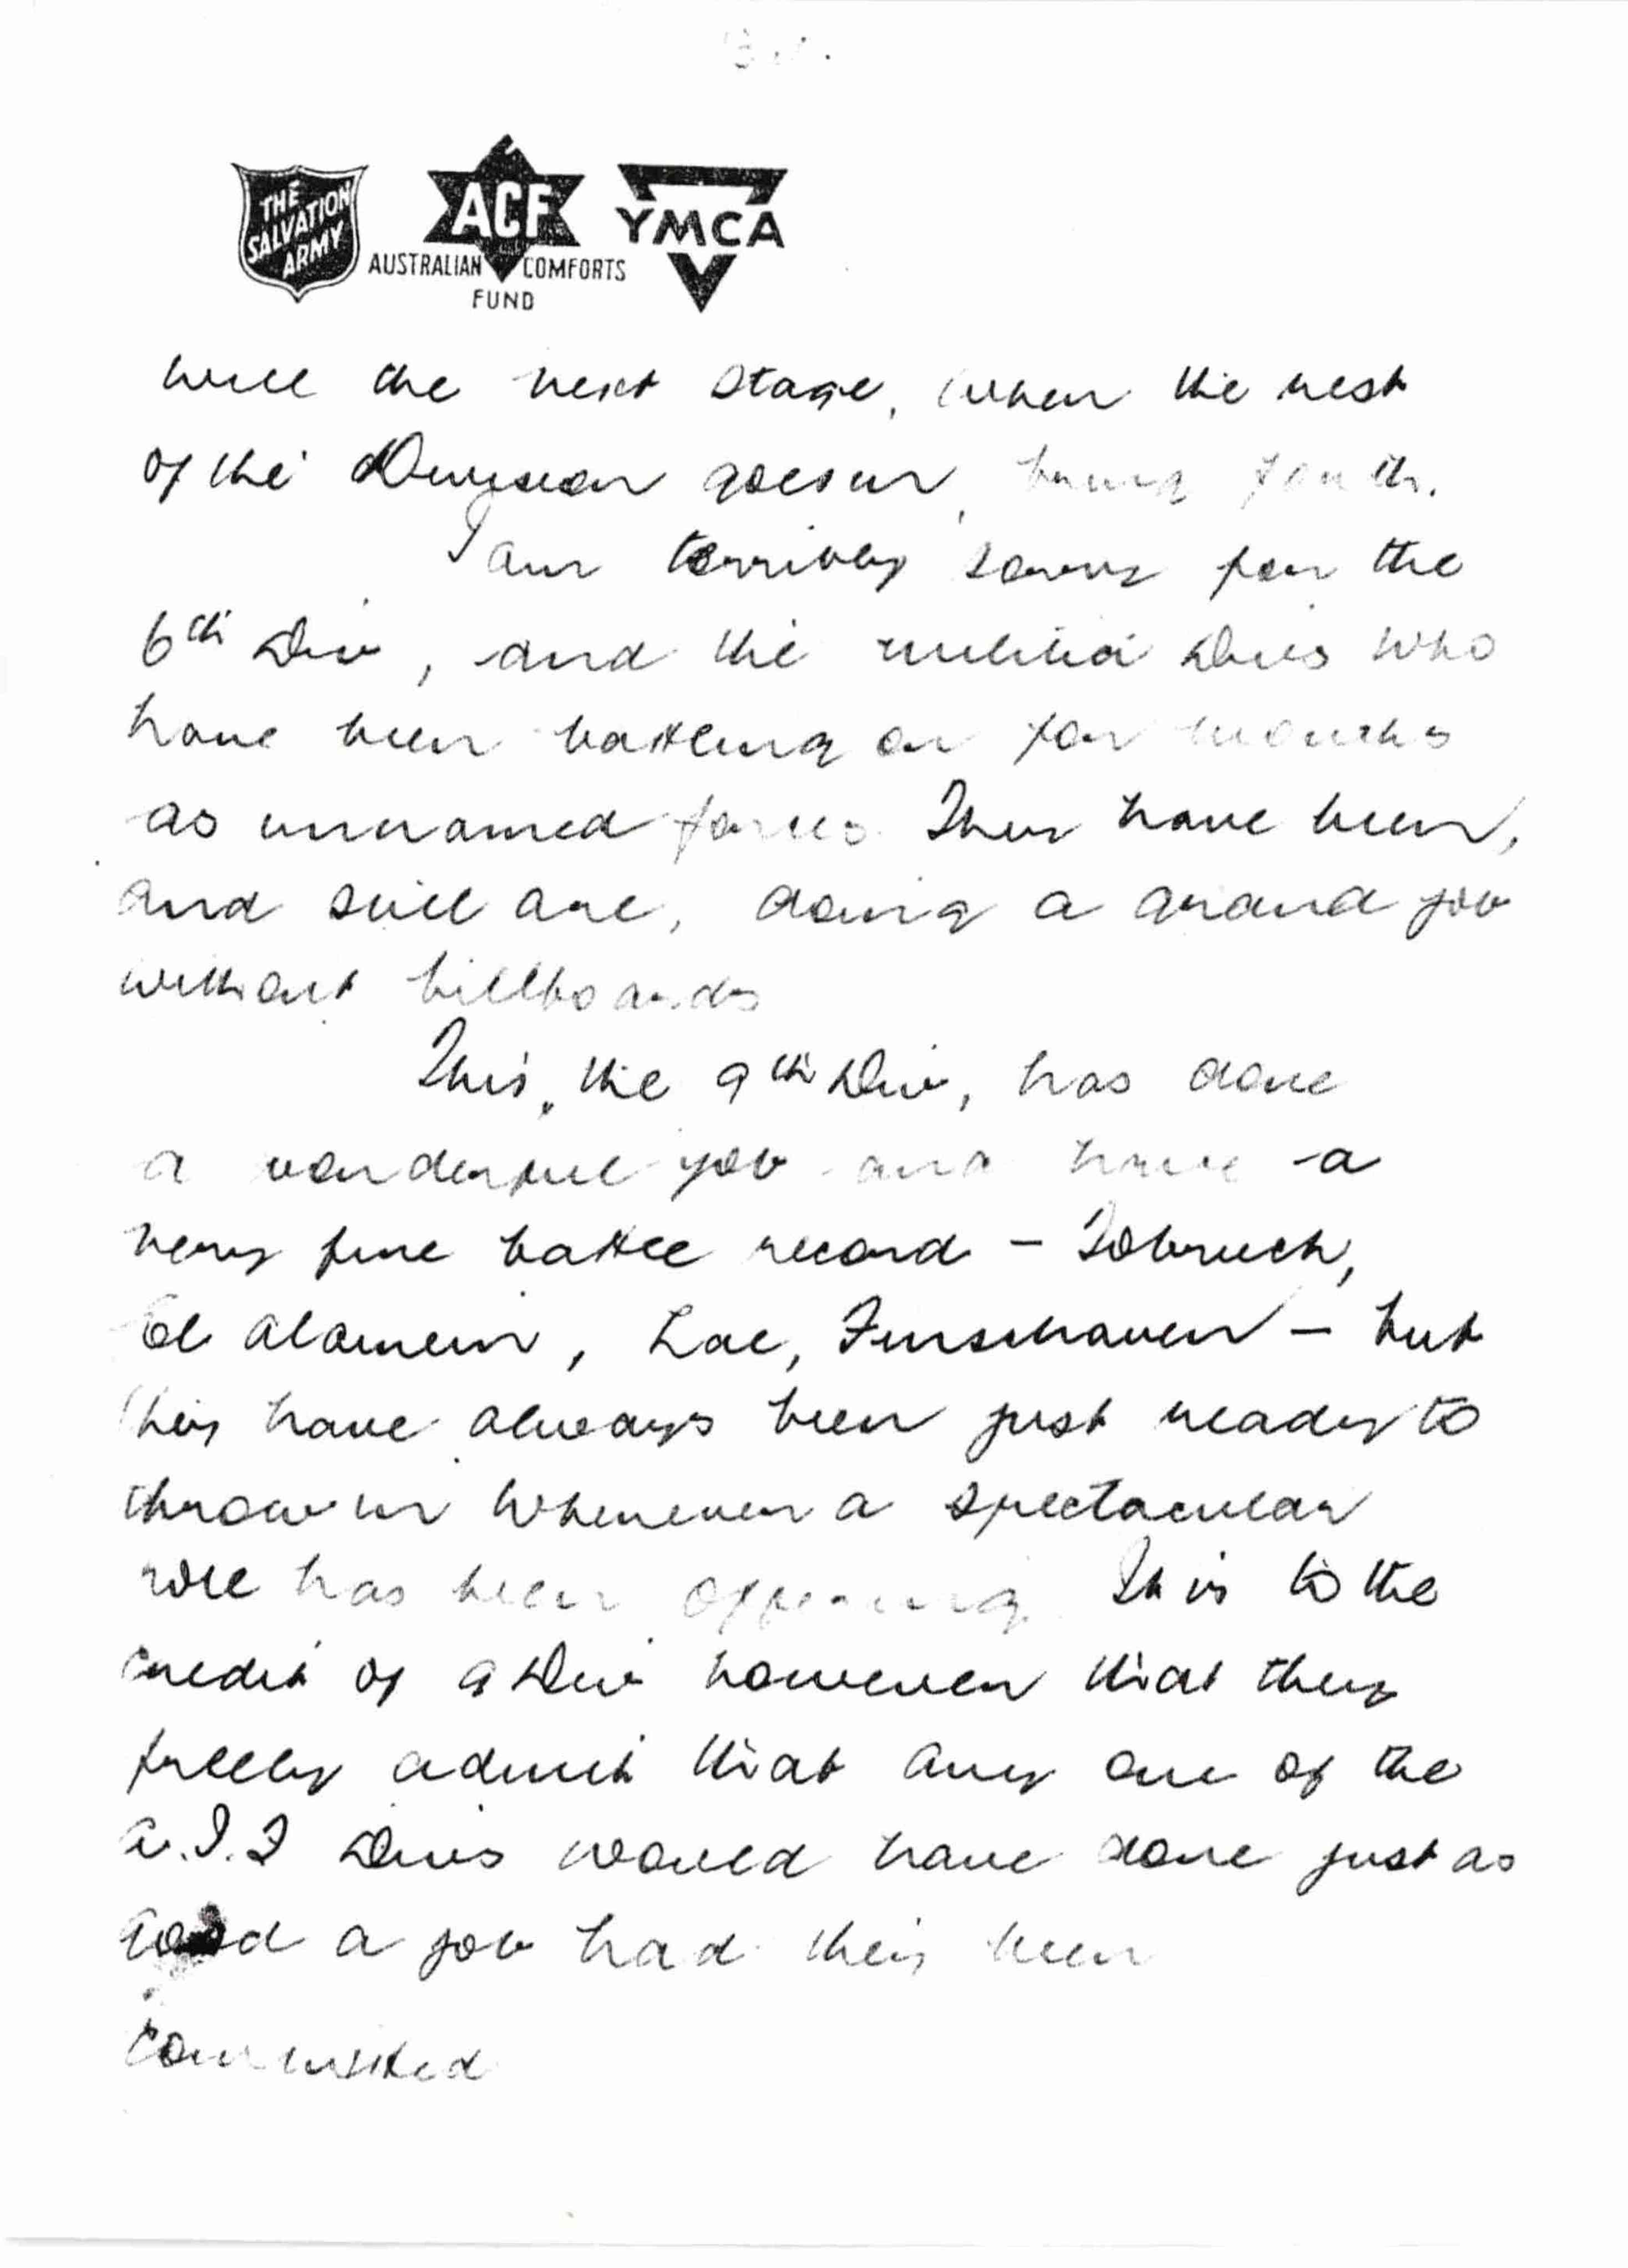 THE SALVATION ARMY
ACF
AUSTRALIAN COMFORTS FUND
YMCA
will the next stage, when the rest
of the Division goes in, bring forth.
I am terribly sorry for the
6th Div, and the militia Divs who
have been battling on for months
as unnamed forces. They have been,
and still are, doing a grand job
without billboards
This, the 9th Div, has done
a wonderful job and have a
very fine battle record - Tobruch,
El Alamein, Lae, Finschaven - but
they have always been just ready to
throw in whenever a spectacular
role has been offering. It is to the
credit of 9 Div however that they
freely admit that any one of the
A.I.F Divs would have done just as
good a job had they been
committed